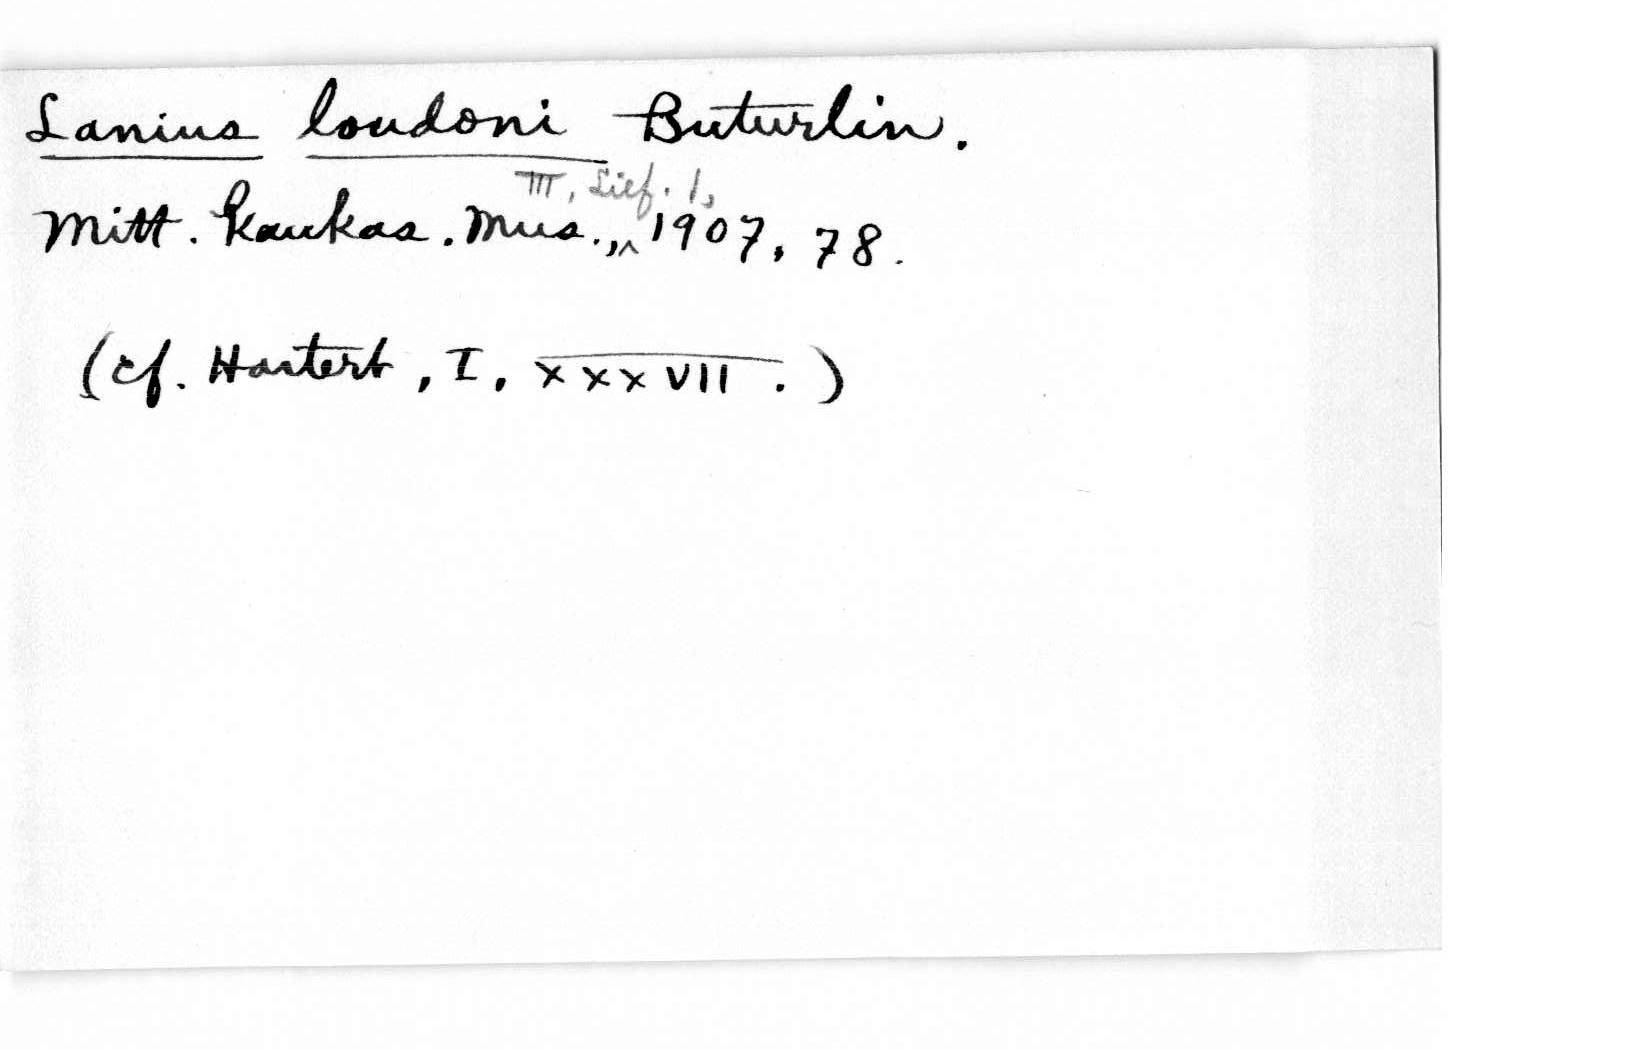 Lanius loudoni Buturlin.
III, Lief. 1,
Mitt. Kaukas. Mus., ^ 1907, 78.
(cf. Hartert, I, XXXVII.)